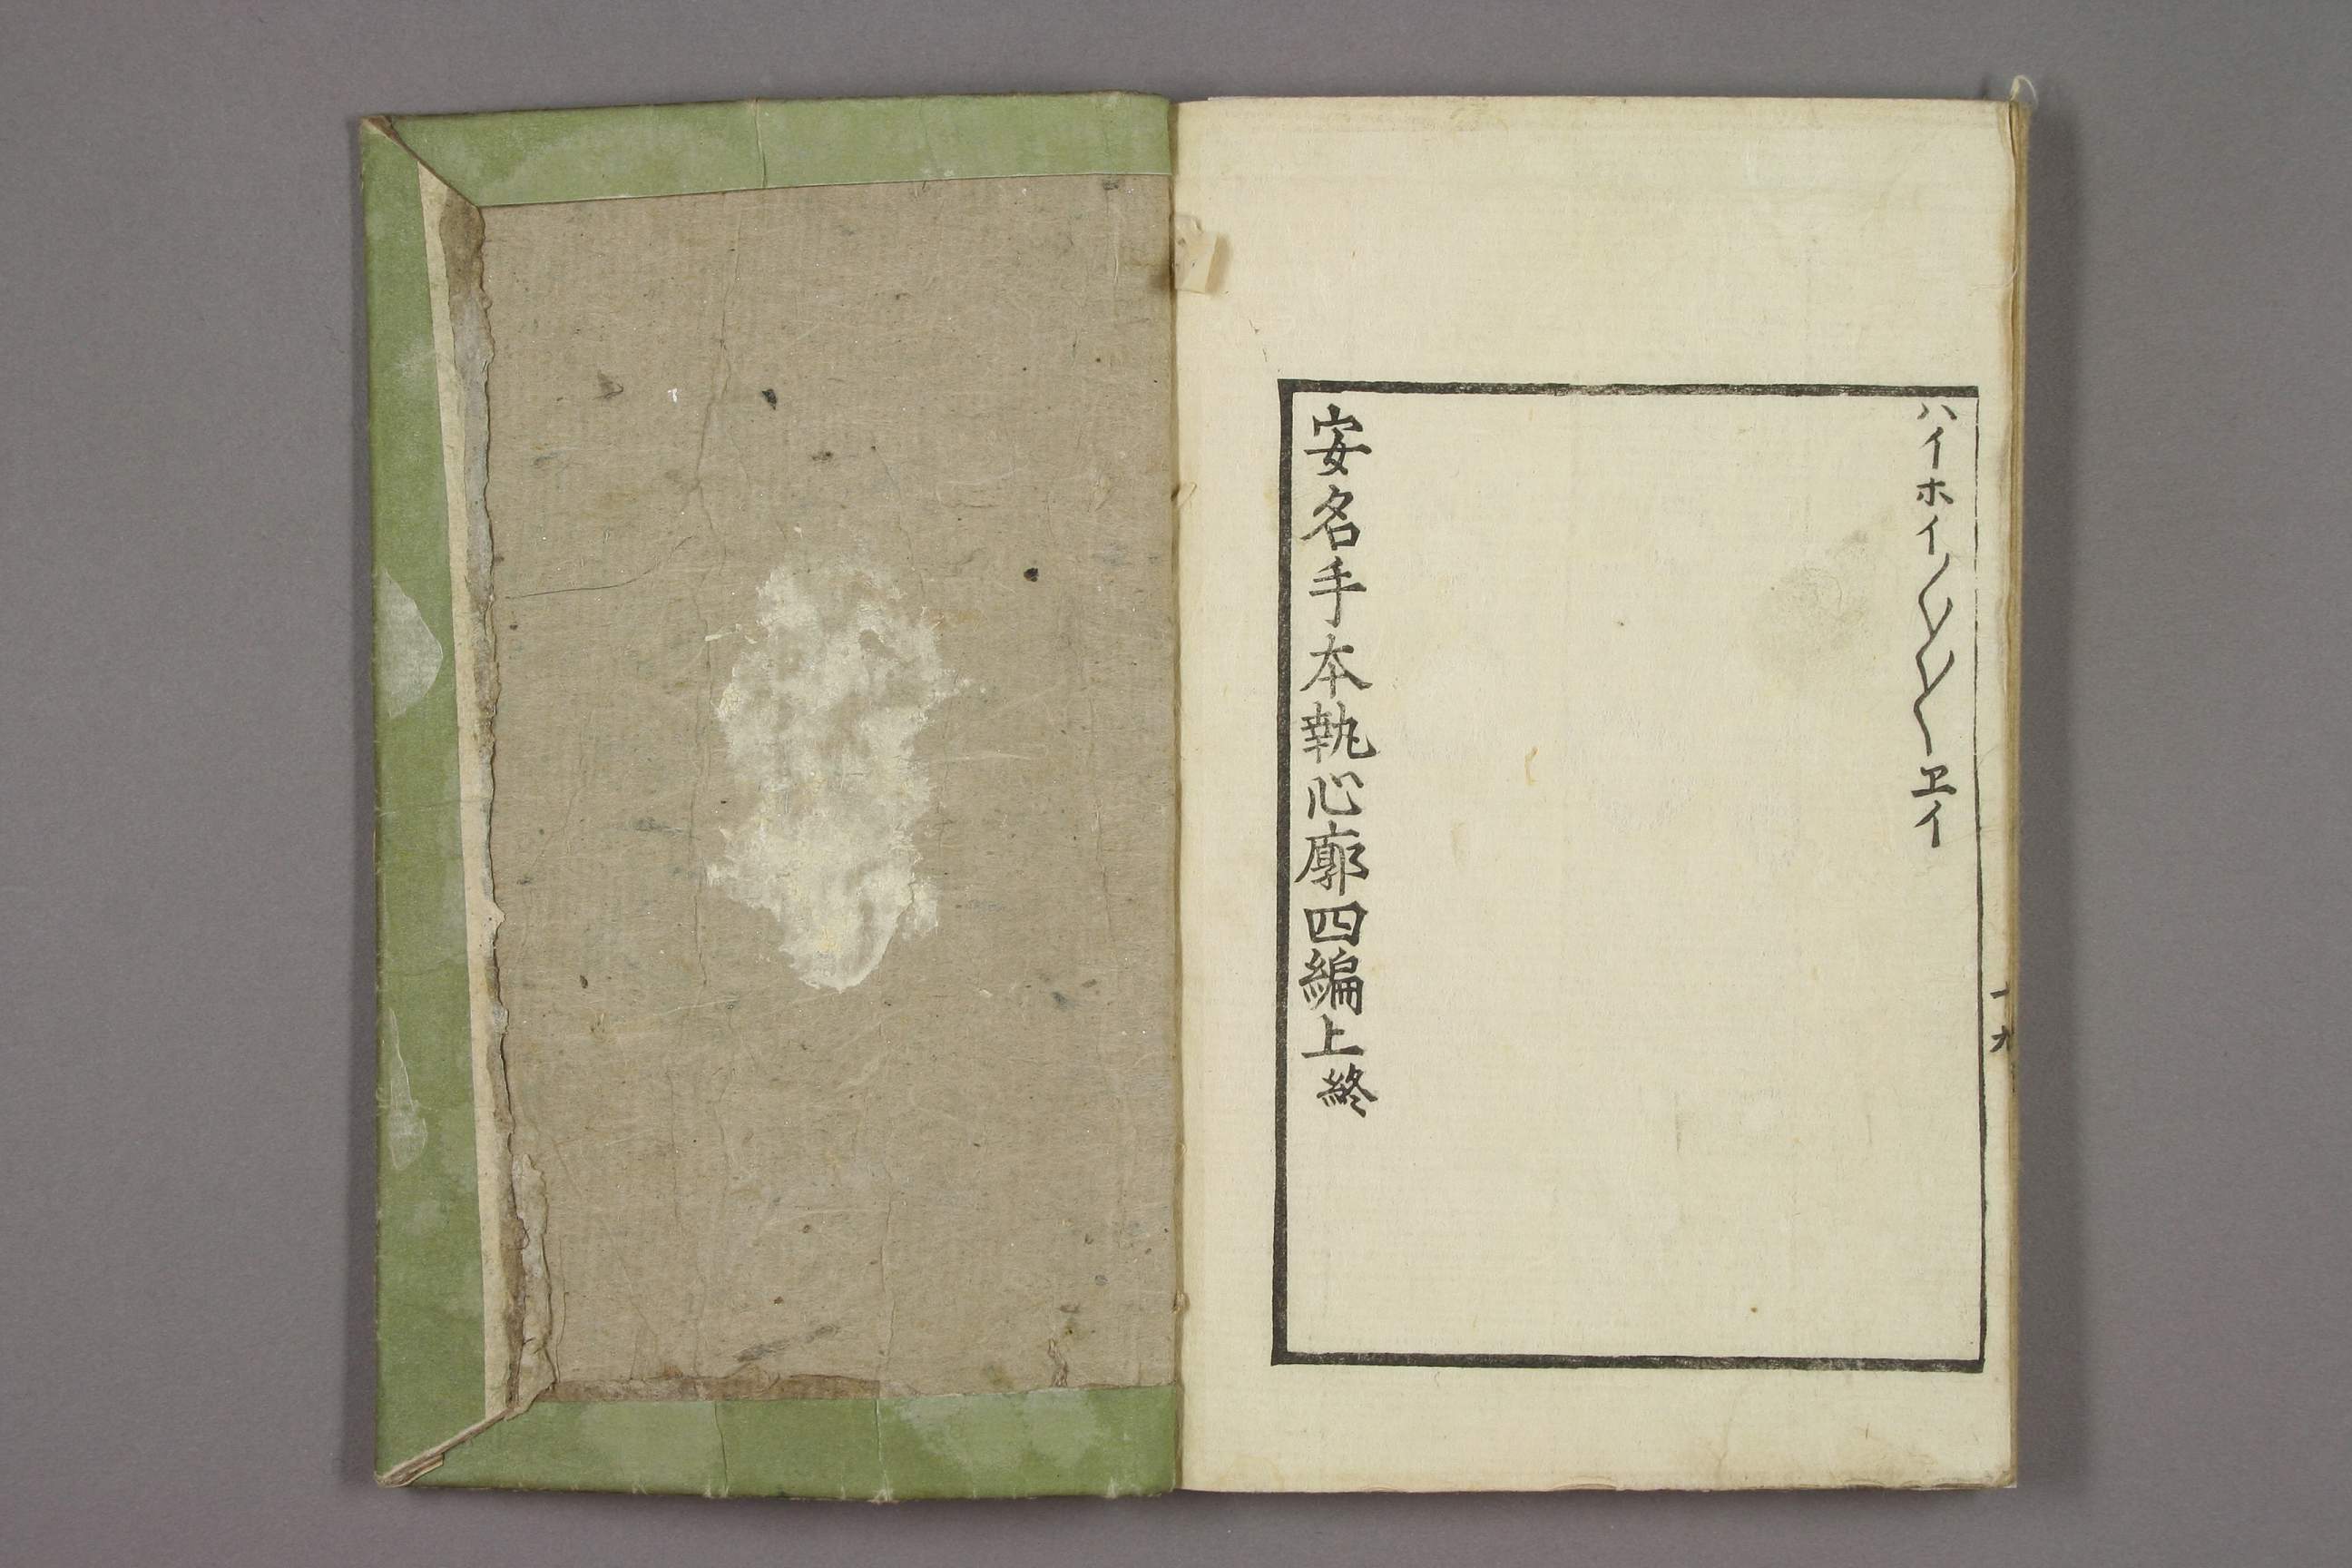 ハイホイ〱〱〱ヱイ
安名手本執心廓四編上終